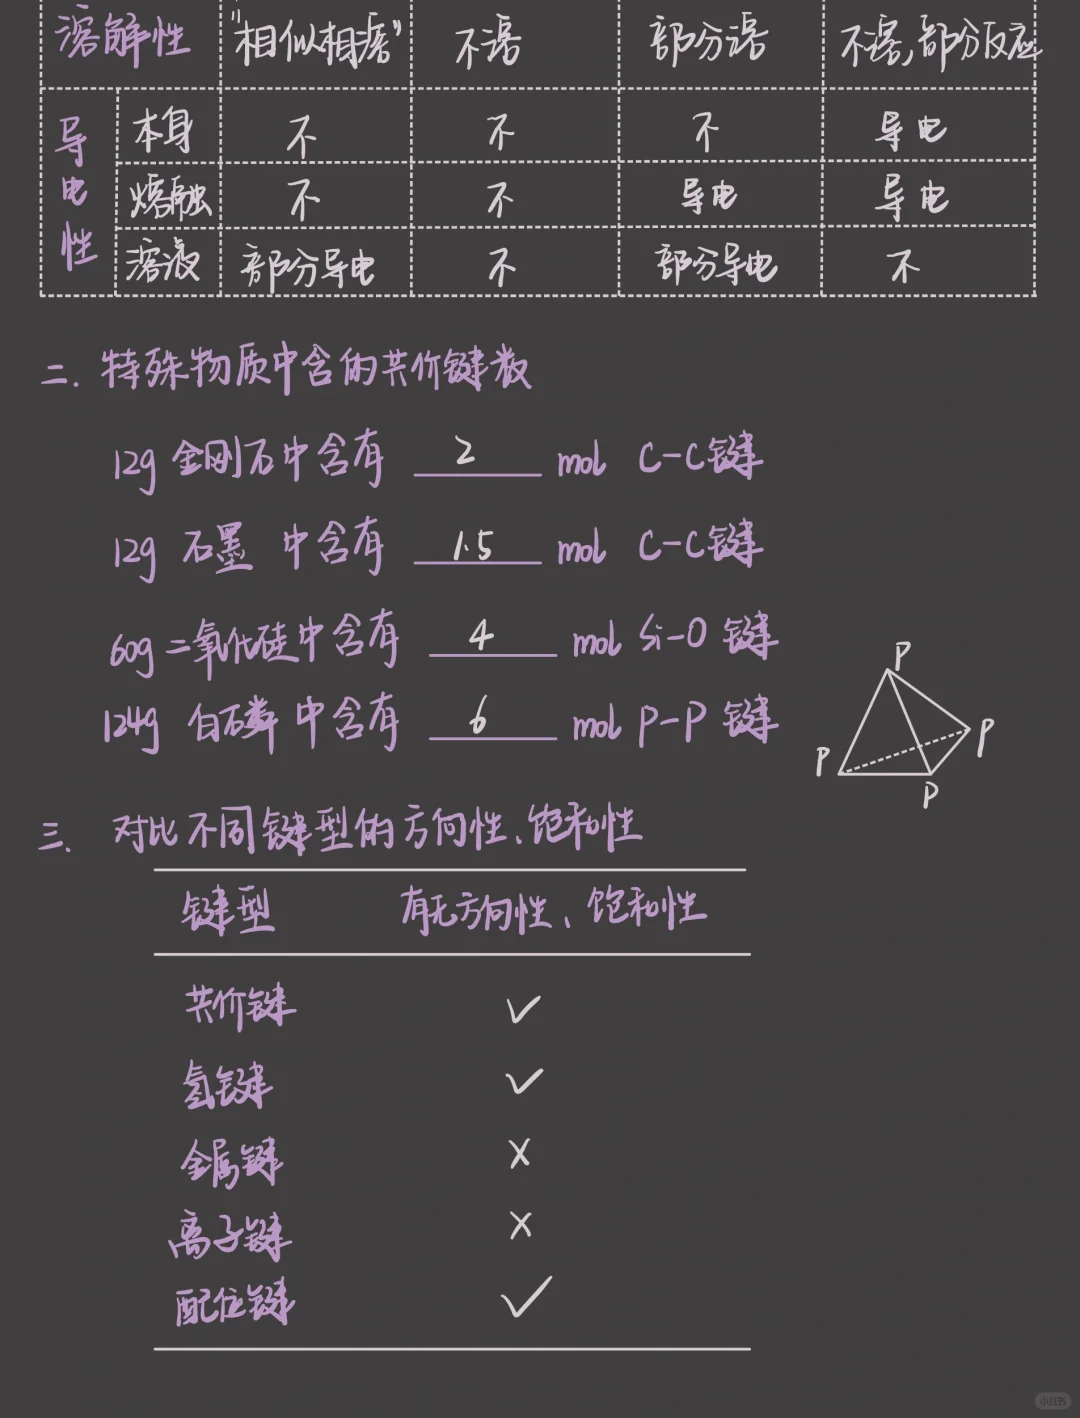 溶解性 "相似相溶" 不溶 部分溶 不溶,部分反应
导电性 本身 不 不 不 导电
熔融 不 不 导电 导电
溶液 部分导电 不 部分导电 不
二. 特殊物质中含的共价键数
12g 金刚石中含有 2 mol C-C键
12g 石墨 中含有 1.5 mol C-C键
60g二氧化硅中含有 4 mol Si-O 键
124g 白磷 中含有 6 mol P-P 键
P
P
P
P
三. 对比不同键型的方向性、饱和性
键型 有无方向性、饱和性
共价键 ✓
氢键 ✓
金属键 ×
离子键 ×
配位键 ✓
小红书